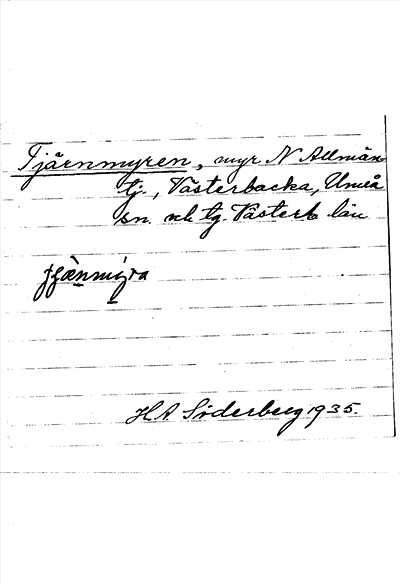 Tjärnmyren, myr N Allmän-
tj., Västerbacka, Umeå
sn. o. tg. Västerb län
H A Söderberg 1935.